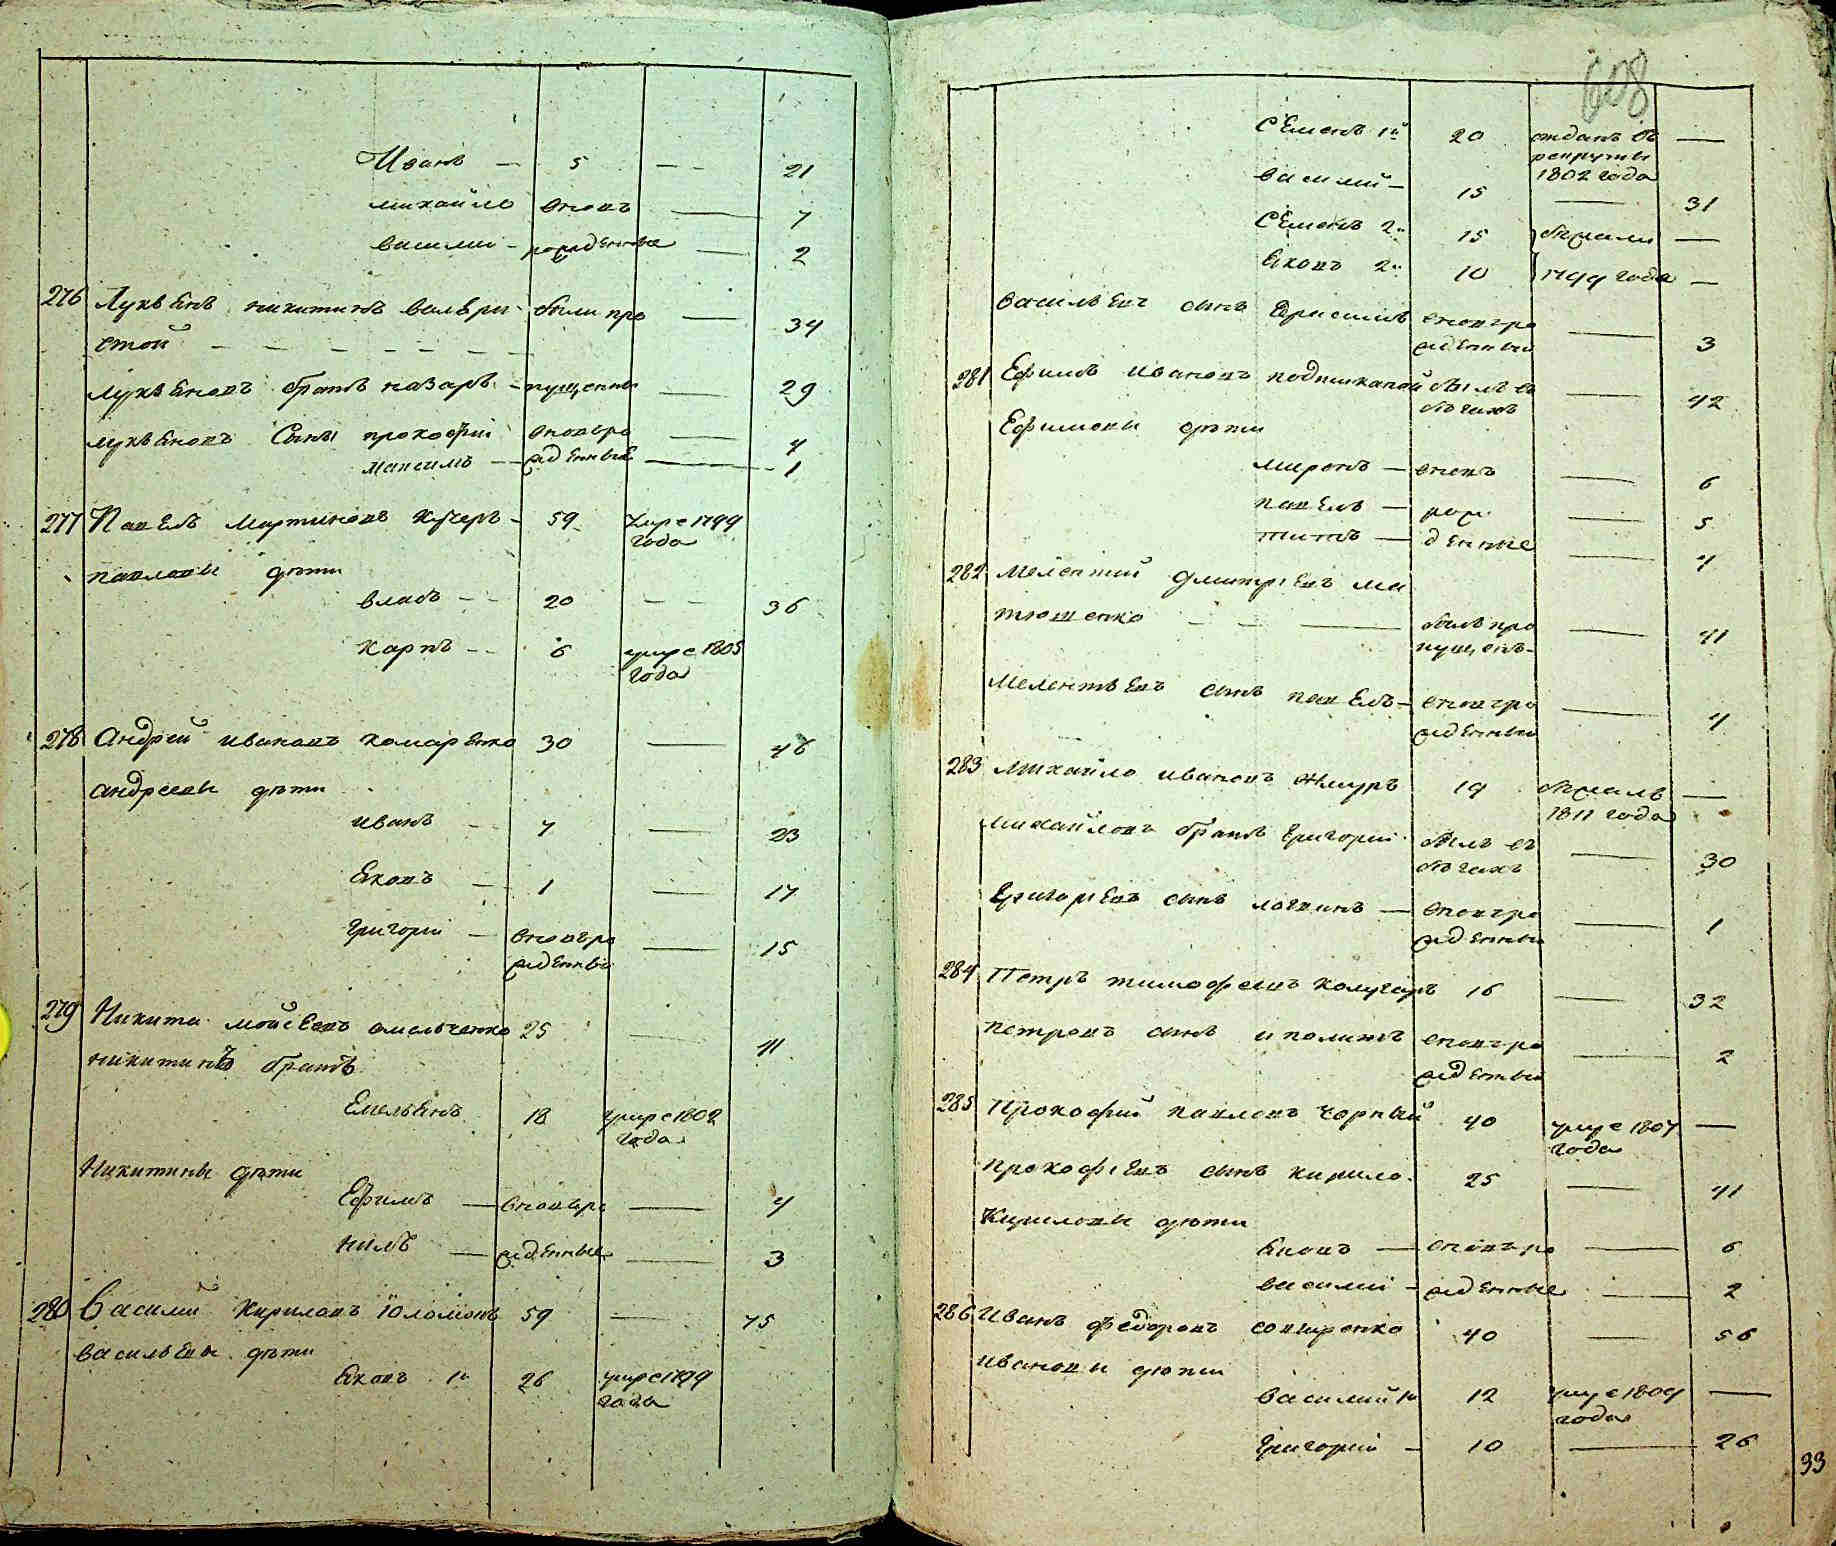 Иванъ — 5 — 21
михайло вновь — 7
василий — рожденные — 2
276 Лукьянъ никитинъ были про — 34
стой — — — — — —
лукьяновъ братъ назаръ — пущенны — 29
лукьяновъ Сыны прокофий вновьро — 4
максимъ — жденные — 1
277 Павелъ мартиновъ Кучеръ — 59 умре 1799
года
павловы дѣти
власъ — — 20 — — 36
карпъ — — 6 умре 1805
года
278 Андрей ивановъ комаренко 30 — 46
андреевы дѣти
иванъ — 7 — 23
Яковъ — 1 — 17
григорий — вновьро — 15
жденный
279 Никита мойсеевъ омельченко 25 — 41
никитинъ братъ
Емельянъ 18 умре 1802
года
Никитины дѣти
Ефимъ — вновьро — 4
нилъ — жденные — 3
280 Василий Кириловъ 59 — 75
васильевы дѣти
Яковъ 1й 26 умре 1799
года
608
Семенъ 1й 20 отданъ въ —
рекруты
1802 года
василий — 15 — 31
Семенъ 2й 15 бѣжали —
Яковъ 2й 10 1799 года —
васильевъ сынъ Герасимъ вновьро — 3
жденный
281 Ефимъ ивановъ былъ въ — 42
бѣгахъ
Ефимовы дѣти
миронъ — вновь — 6
павелъ — рож — 5
титъ — денные — 4
282 мелентий дмитриевъ ма
тюшенко — — — былъ про — 41
пущенъ
мелентьевъ сынъ павелъ — вновьро — 4
жденный
283 михайло ивановъ жмуръ 19 бѣжалъ —
1811 года
михайловъ братъ Григорий былъ въ — 30
бѣгахъ
Григориевъ сынъ логвинъ — вновьро — 1
жденный
284 Петръ тимофеевъ 16 — 32
петровъ сынъ иполитъ вновьро — 2
жденный
285 Прокофий павловъ чорный 40 умре 1807 —
года
прокофиевъ сынъ кирило 25 — 41
Кириловы дѣти
Яковъ — вновьро — 6
василий — жденные — 2
286 Иванъ федоровъ 40 — 56
ивановы дѣти
василий 1й 12 умре 1809 —
года
Григорий — 10 — 26
33